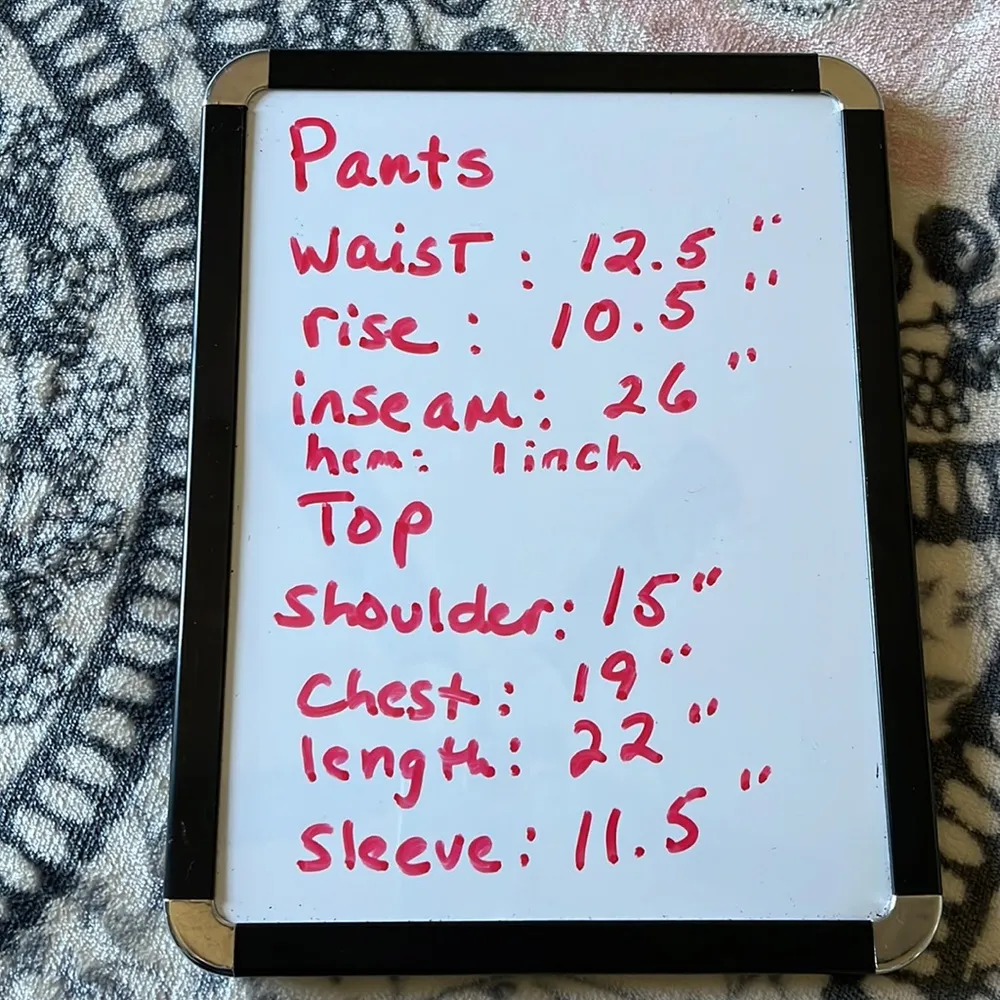 Pants
Waist: 12.5"
rise: 10.5"
inseam: 26"
hem: 1 inch
Top
Shoulder: 15"
Chest: 19"
length: 22"
Sleeve: 11.5"